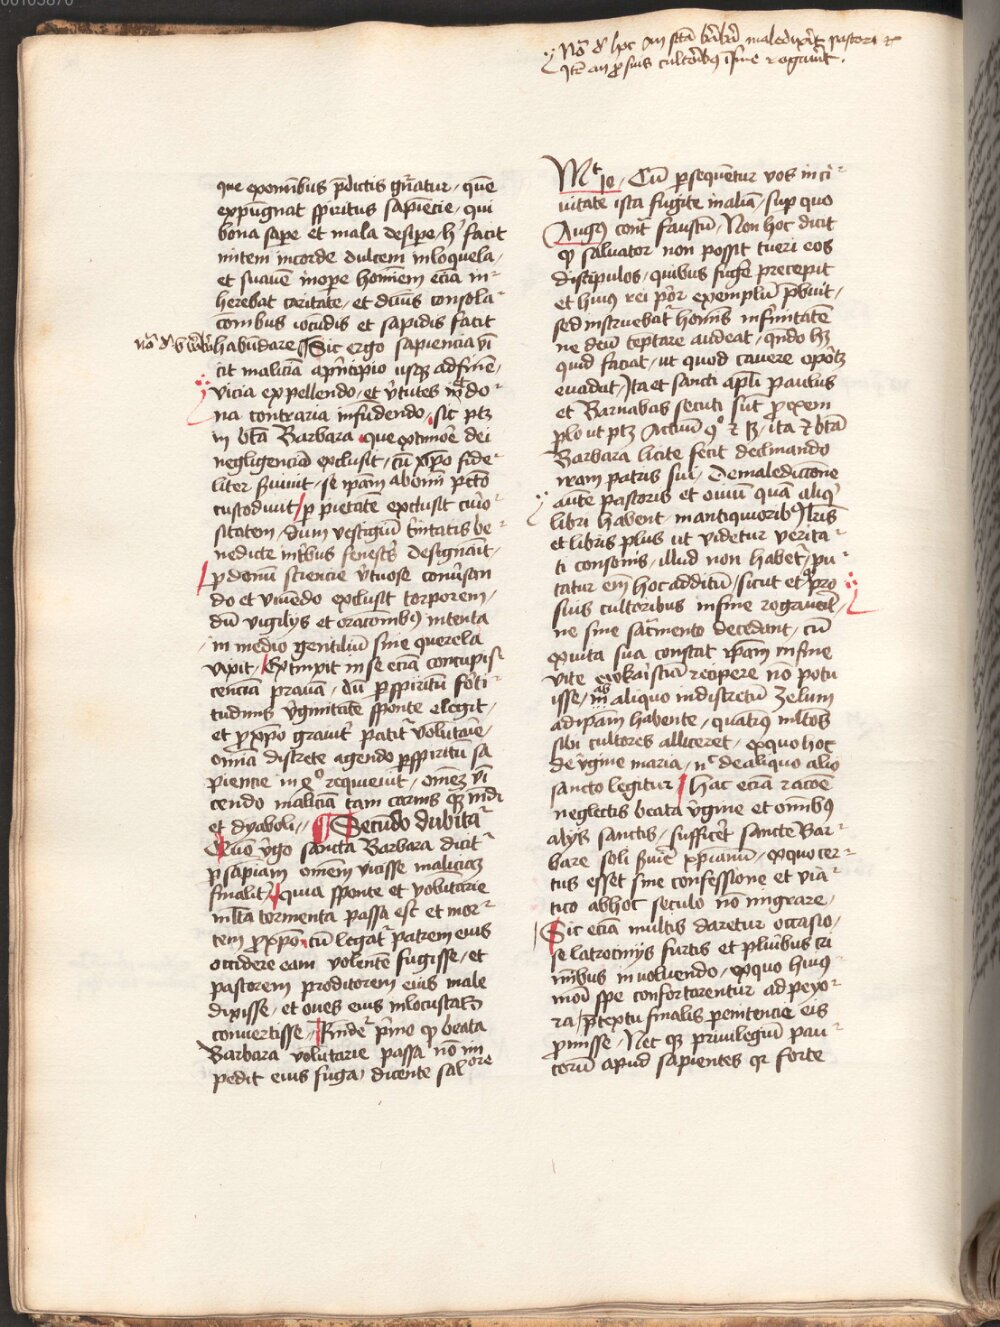 Nõ ḋ hoc an sctã barbarã maledixĩt pastori et
Itẽ an ꝓ suis cultoribꝯ ĩ fine rogauĩt .
que ex omnibus p̃dictis gñatur , quẽ
expũgnat spiritus sapiẽcie , qui
bona sape et mala desipe , hͥ facit
mitem in corde dulcem in loquela ,
et suauẽ in ope hominem eciã in
herebat caritate , et diuĩs consola
tionibus iocũdis et sapidis facit
habũdare , Sic ergo sapiencia vĩ
cit maliciã a pñcipio usqꝫ ad finẽ ,
vicia expellendo , et v̓tutes do
na contraria infũdendo , sic ptꝫ
in btã Barbara , que timoẽ dei
negligenciã exclusit , cũ xp̃o fide
liter uiuit , se ip̃am ab om̃i pctõ
custodiuit , p pietatẽ exclusit curio
sitatem , dum vestigiũ t̓nitatis be
nedicte tribus fenestris designauit ,
p donũ sciencie v̓tuose conũsan
do et viuendo exclusit torporem ,
dũ vigilijs et oracõnibꝯ intenta
in medio gentiliũ sine querela
vixit , Extinxit in se eciã concupis
cenciã prauã , dũ p spiritũ forti
tudinis v̓ginitatẽ sponte elegit ,
et ꝓ xp̃o grauit̓ patit̓ voluntarie ,
om̃ia discrete agendo p spiritũ sa
piencie in ea requieuit , om̃eꝫ vĩ
cendo maliciã tam carnis qꝫ mũdi
et dyaboli , Secũdo dubitat̓
Quõ v̓go sancta Barbara dicit̓
p sapiam om̃em vicisse maliciaꝫ
finalit̓ , quia sponte et volũtarie
mlta tormenta passa est et mor
tem ꝓ xp̃o , cũ legat̓ patrem eius
occidere eam volentẽ fugisse , et
pastorem proditorem eius male
dixisse , et oues eius in locustas
conuertisse , Rñdet̓ primo qꝙ beata
Barbara volũtarie passa nõ im
pedit eius fuga , dicente saluatore
Mt 10 , Cũ p̱sequẽtur vos in ci
uitate ista fugite in aliã , sup quo
Augꝯ cont̓ faustũ , Non hoc dicit
qꝙ saluator non possit tueri eos
discipulos , quibus fug̓e precepit
et huiꝯ rei p̓or exemplũ p̃buit ,
sed instruebat̓ hoĩnis infirmitatẽ
ne deũ temptare audeat , quãdo hꝫ
quid faciat , ut quod cauere oportꝫ
euadat , Ita et sancti apl̃i paulus
et Barnabas secuti sũt ꝓ exem
plo ut ptꝫ Actuũ 9º et 13 , ita et btã
Barbara licite fecit declinando
iram patris sui , De maledictione
aute pastoris et ouiũ quã aliqͥ
libri habent , in antiquioribꝯ libris
et libris plus ut videtur verita
ti consonis , illud non habet̓ , pu
tatur em̃ hoc additũ , sicut et qꝙ pro
suis cultoribus in fine rogauerit ,
ne sine sac̓mento decedant , cũ
ex vita sua constat ip̃am in fine
vite eukaristiã recipere nõ potu
isse , ab aliquo indiscretũ zelum
ad ip̃am habente , quatinꝯ mltos
sibi cultores alliceret , ex quo hoc
de v̓gine maria , nec de aliquo alio
sancto legitur , hac eciã racõe
neglectis beata v̓gine et om̃ibꝯ
alijs sanctis , sufficeret sancte Bar
bare soli seruire xp̃ianũ , ex quo cer
tus esset sine confessione et via
tico ab hoc seculo nõ migrare ,
Sic eciã multis daretur occasio ,
se latrocinijs furtis et pluribus cri
minibus inuoluendo , ex quo huiꝯ
modi spe confortarentur ad peyo
ra , p̃textu finalis penitencie eis
ꝓmisse , Nec qꝫ priuilegiũ pau
corũ apud sapientes qr forte